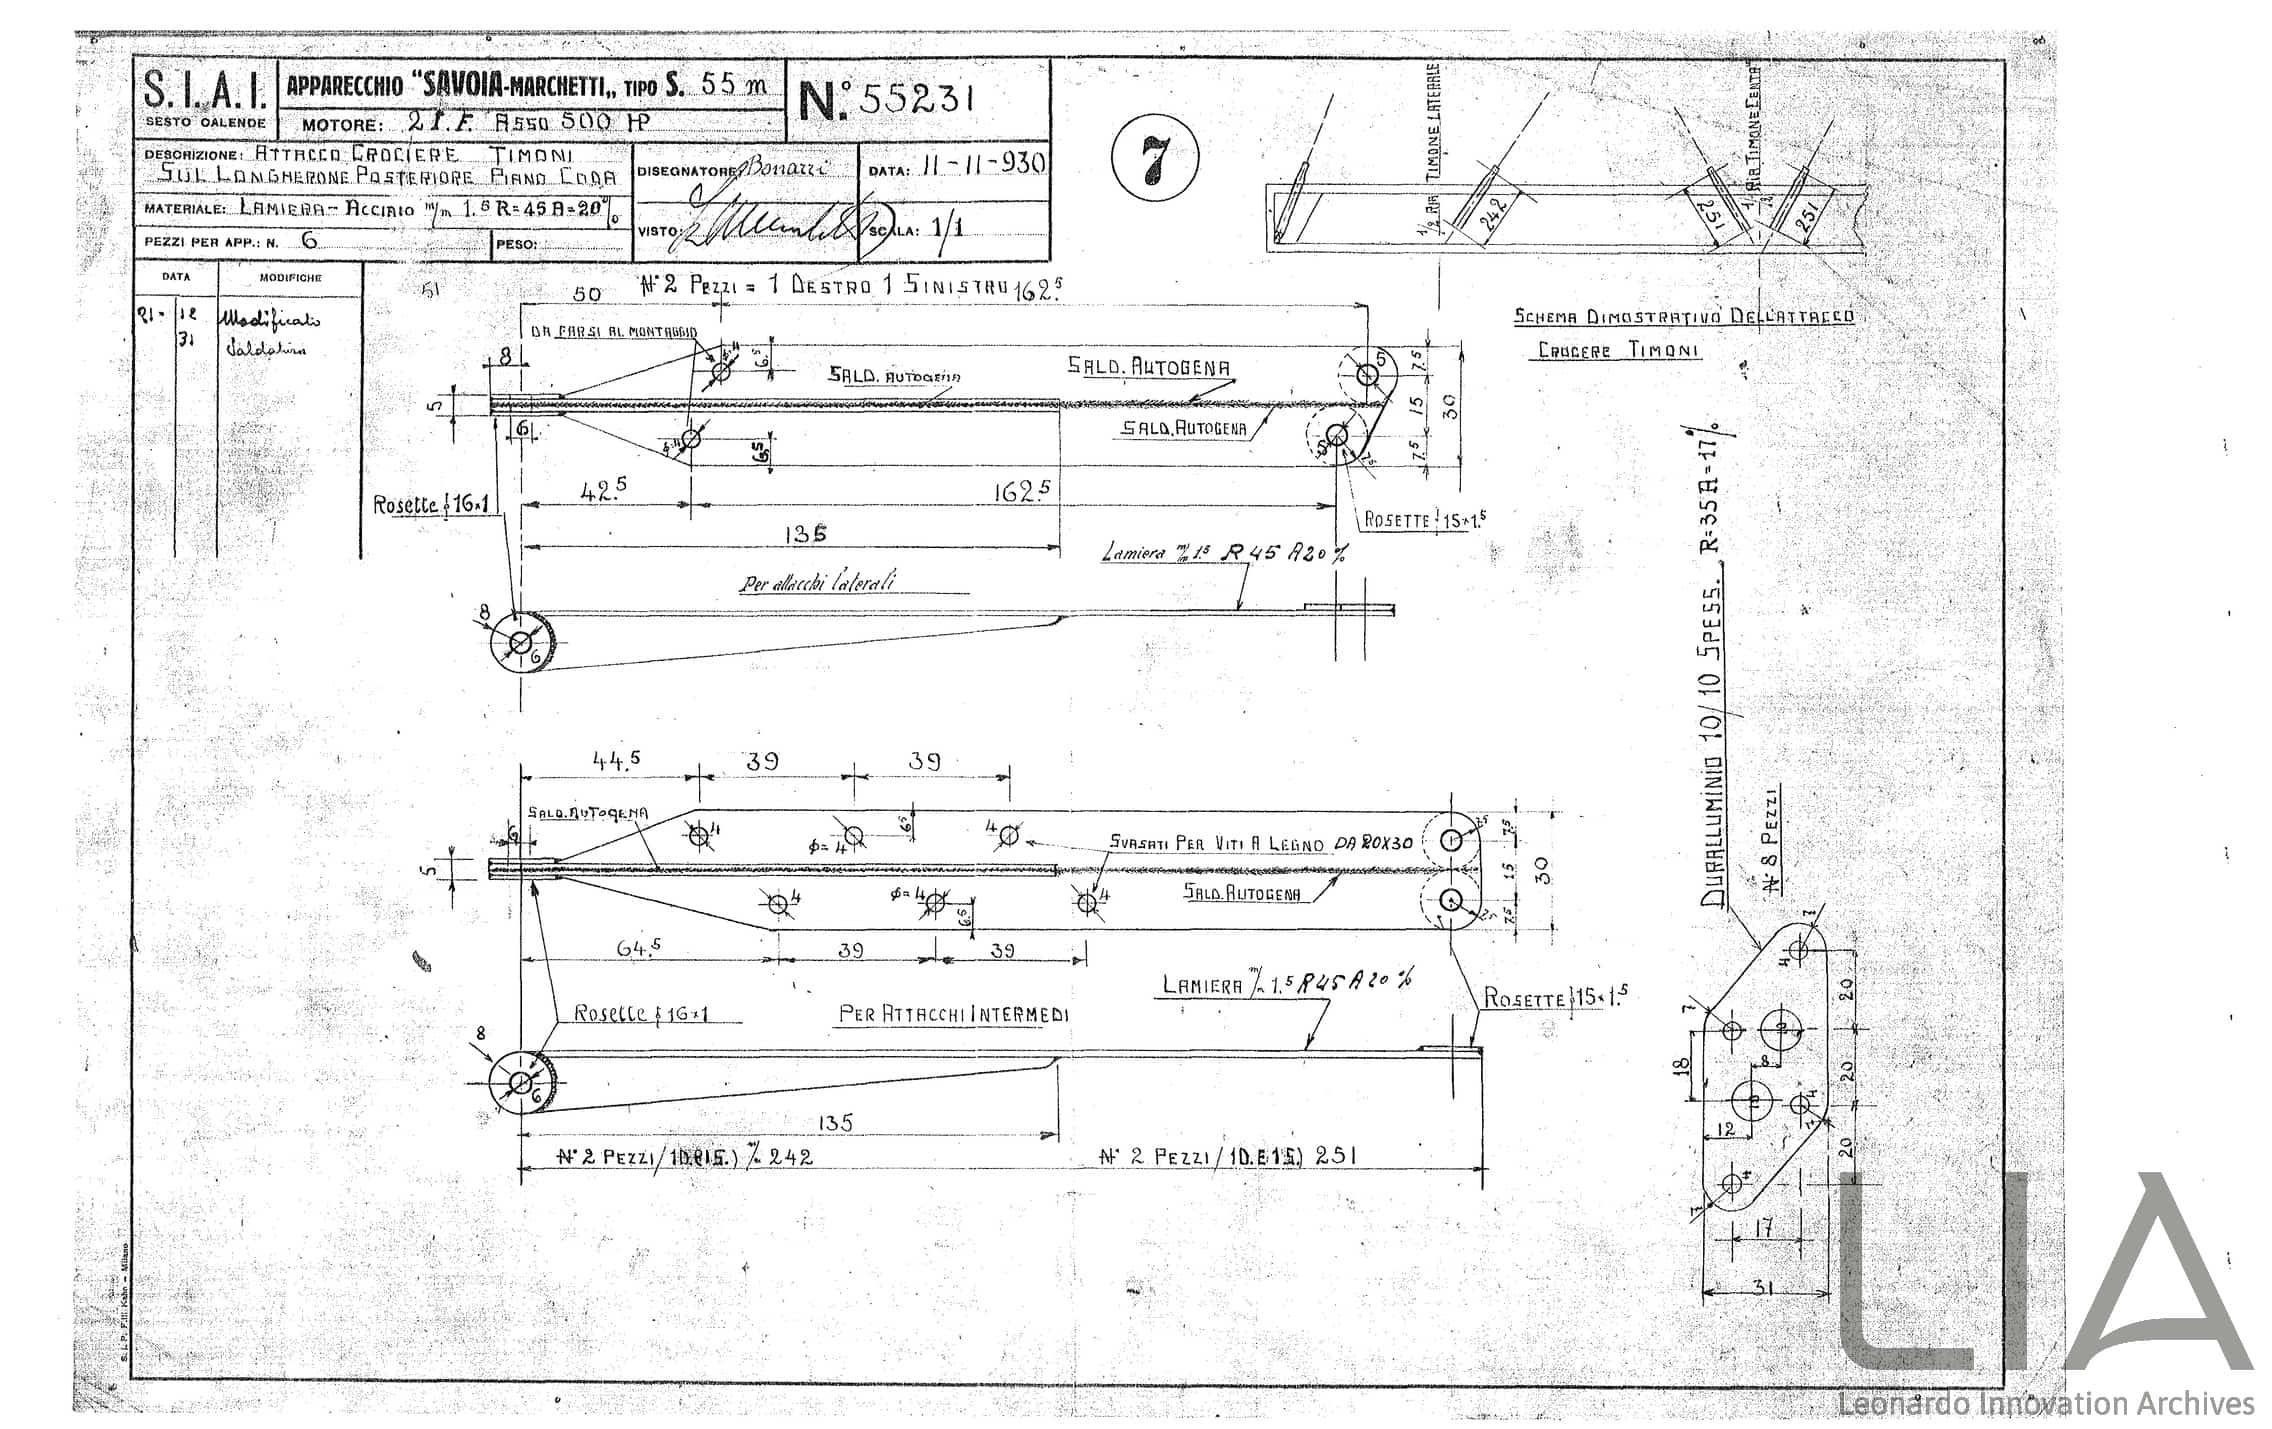 S.I.A.I.
SESTO CALENDE
APPARECCHIO "SAVOIA-MARCHETTI„ TIPO S. 55 m
MOTORE: 2 I.F. ASSO 500 HP
N.º 55231
DESCRIZIONE: ATTACCO CROCIERE TIMONI
SUL LONGHERONE POSTERIORE PIANO CODA
MATERIALE: LAMIERA-ACCIAIO m/m 1.5 R=45 A=20%
PEZZI PER APP.: N. 6
PESO:
DISEGNATORE: Bonazzi
DATA: 11-11-930
VISTO:
SCALA: 1/1
DATA
MODIFICHE
21-12
31
Modificato
Saldatura
7
½ AIR TIMONE LATERALE
242
251
251
SCHEMA DIMOSTRATIVO DELL'ATTACCO
CROCERE TIMONI
51
N° 2 PEZZI = 1 DESTRO 1 SINISTRO
50
162.5
DA FARSI AL MONTAGGIO
8
6.5
SALD. AUTOGENA
SALD. AUTOGENA
5
7.5
5
6
15
30
SALD. AUTOGENA
6.5
7.5
7.5
42.5
162.5
Rosette ϕ 16×1
ROSETTE ϕ 15×1.5
135
Lamiera m/m 1.5 R 45 A 20 %
Per attacchi laterali
8
6
44.5
39
39
SALD. AUTOGENA
6
4
ϕ=4
6.5
4
SVASATI PER VITI A LEGNO DA 20X30
7.5
7.5
5
15
30
4
ϕ=4
6.5
4
SALD. AUTOGENA
7.5
7.5
64.5
39
39
LAMIERA m/m 1.5 R 45 A 20 %
ROSETTE ϕ 15×1.5
Rosette ϕ 16×1
PER ATTACCHI INTERMEDI
8
6
135
N° 2 PEZZI/1D.E1S.) m/m 242
N° 2 PEZZI/1D.E1S.) 251
DURALLUMINIO 10/10 SPESS. R=35 A=17%
N° 8 PEZZI
7
4
20
7
18
8
20
4
12
7
20
4
7
17
31
S. I. P. F.lli Kahn - Milano
LIA
Leonardo Innovation Archives